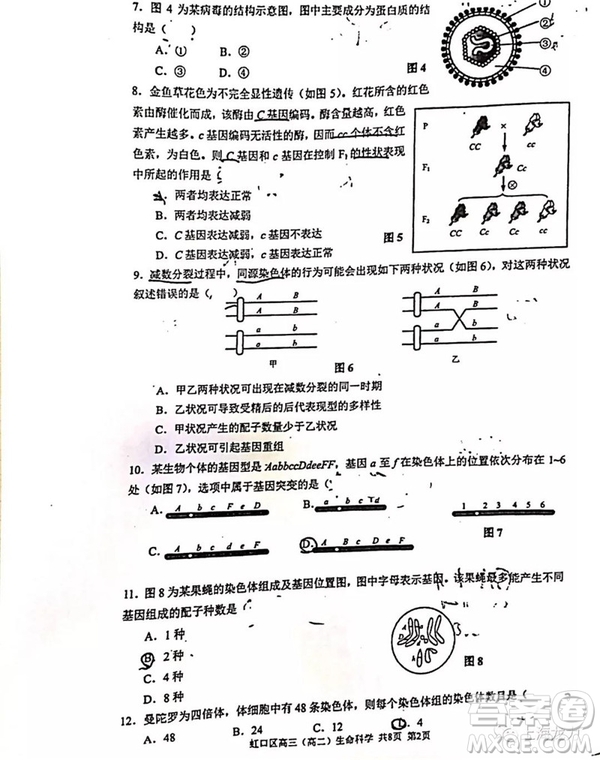 7. 图 4 为某病毒的结构示意图，图中主要成分为蛋白质的结
构是（ ）
A. ① B. ②
C. ③ D. ④
图 4
①
②
③
④
8. 金鱼草花色为不完全显性遗传（如图 5）。红花所含的红色
素由酶催化而成，该酶由 C 基因编码。酶含量越多，红色
素产生越多。c 基因编码无活性的酶，因而 cc 个体不含红
色素，为白色。则 C 基因和 c 基因在控制 F₁ 的性状表现
中所起的作用是（ ）
A. 两者均表达正常
B. 两者均表达减弱
C. C 基因表达减弱，c 基因不表达
D. C 基因表达减弱，c 基因表达正常
P CC × cc
F₁ Cc
⊗
F₂ CC Cc Cc cc
图 5
9. 减数分裂过程中，同源染色体的行为可能会出现如下两种状况（如图 6），对这两种状况
叙述错误的是（ ）
A B A B
A B A B
a b a b
a b a b
甲 图 6 乙
A. 甲乙两种状况可出现在减数分裂的同一时期
B. 乙状况可导致受精后的后代表现型的多样性
C. 甲状况产生的配子数量少于乙状况
D. 乙状况可引起基因重组
10. 某生物个体的基因型是 AabbccDdeeFF，基因 a 至 f 在染色体上的位置依次分布在 1~6
处（如图 7），选项中属于基因突变的是（ ）
A. A b c F e D
B. A b c d
1 2 3 4 5 6
C. A b c d e F
D. A B c d e F
图 7
11. 图 8 为某果蝇的染色体组成及基因位置图，图中字母表示基因，该果蝇最多能产生不同
基因组成的配子种数是（
A. 1 种
B. 2 种
C. 4 种
D. 8 种
图 8
12. 曼陀罗为四倍体，体细胞中有 48 条染色体，则每个染色体组的染色体数目是（
A. 48 B. 24 C. 12 D. 4
虹口区高三（高二）生命科学 共8页 第2页